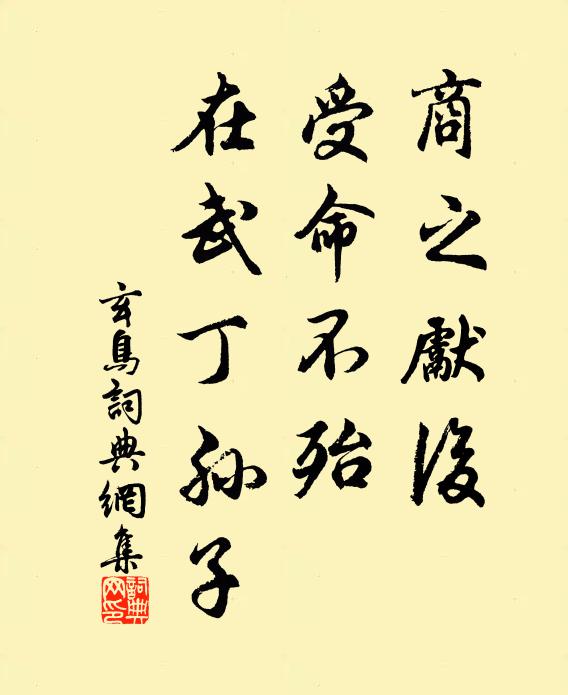 商之獻後
受命不殆
在武丁孙子
玄鳥詞典網集
詞典网印